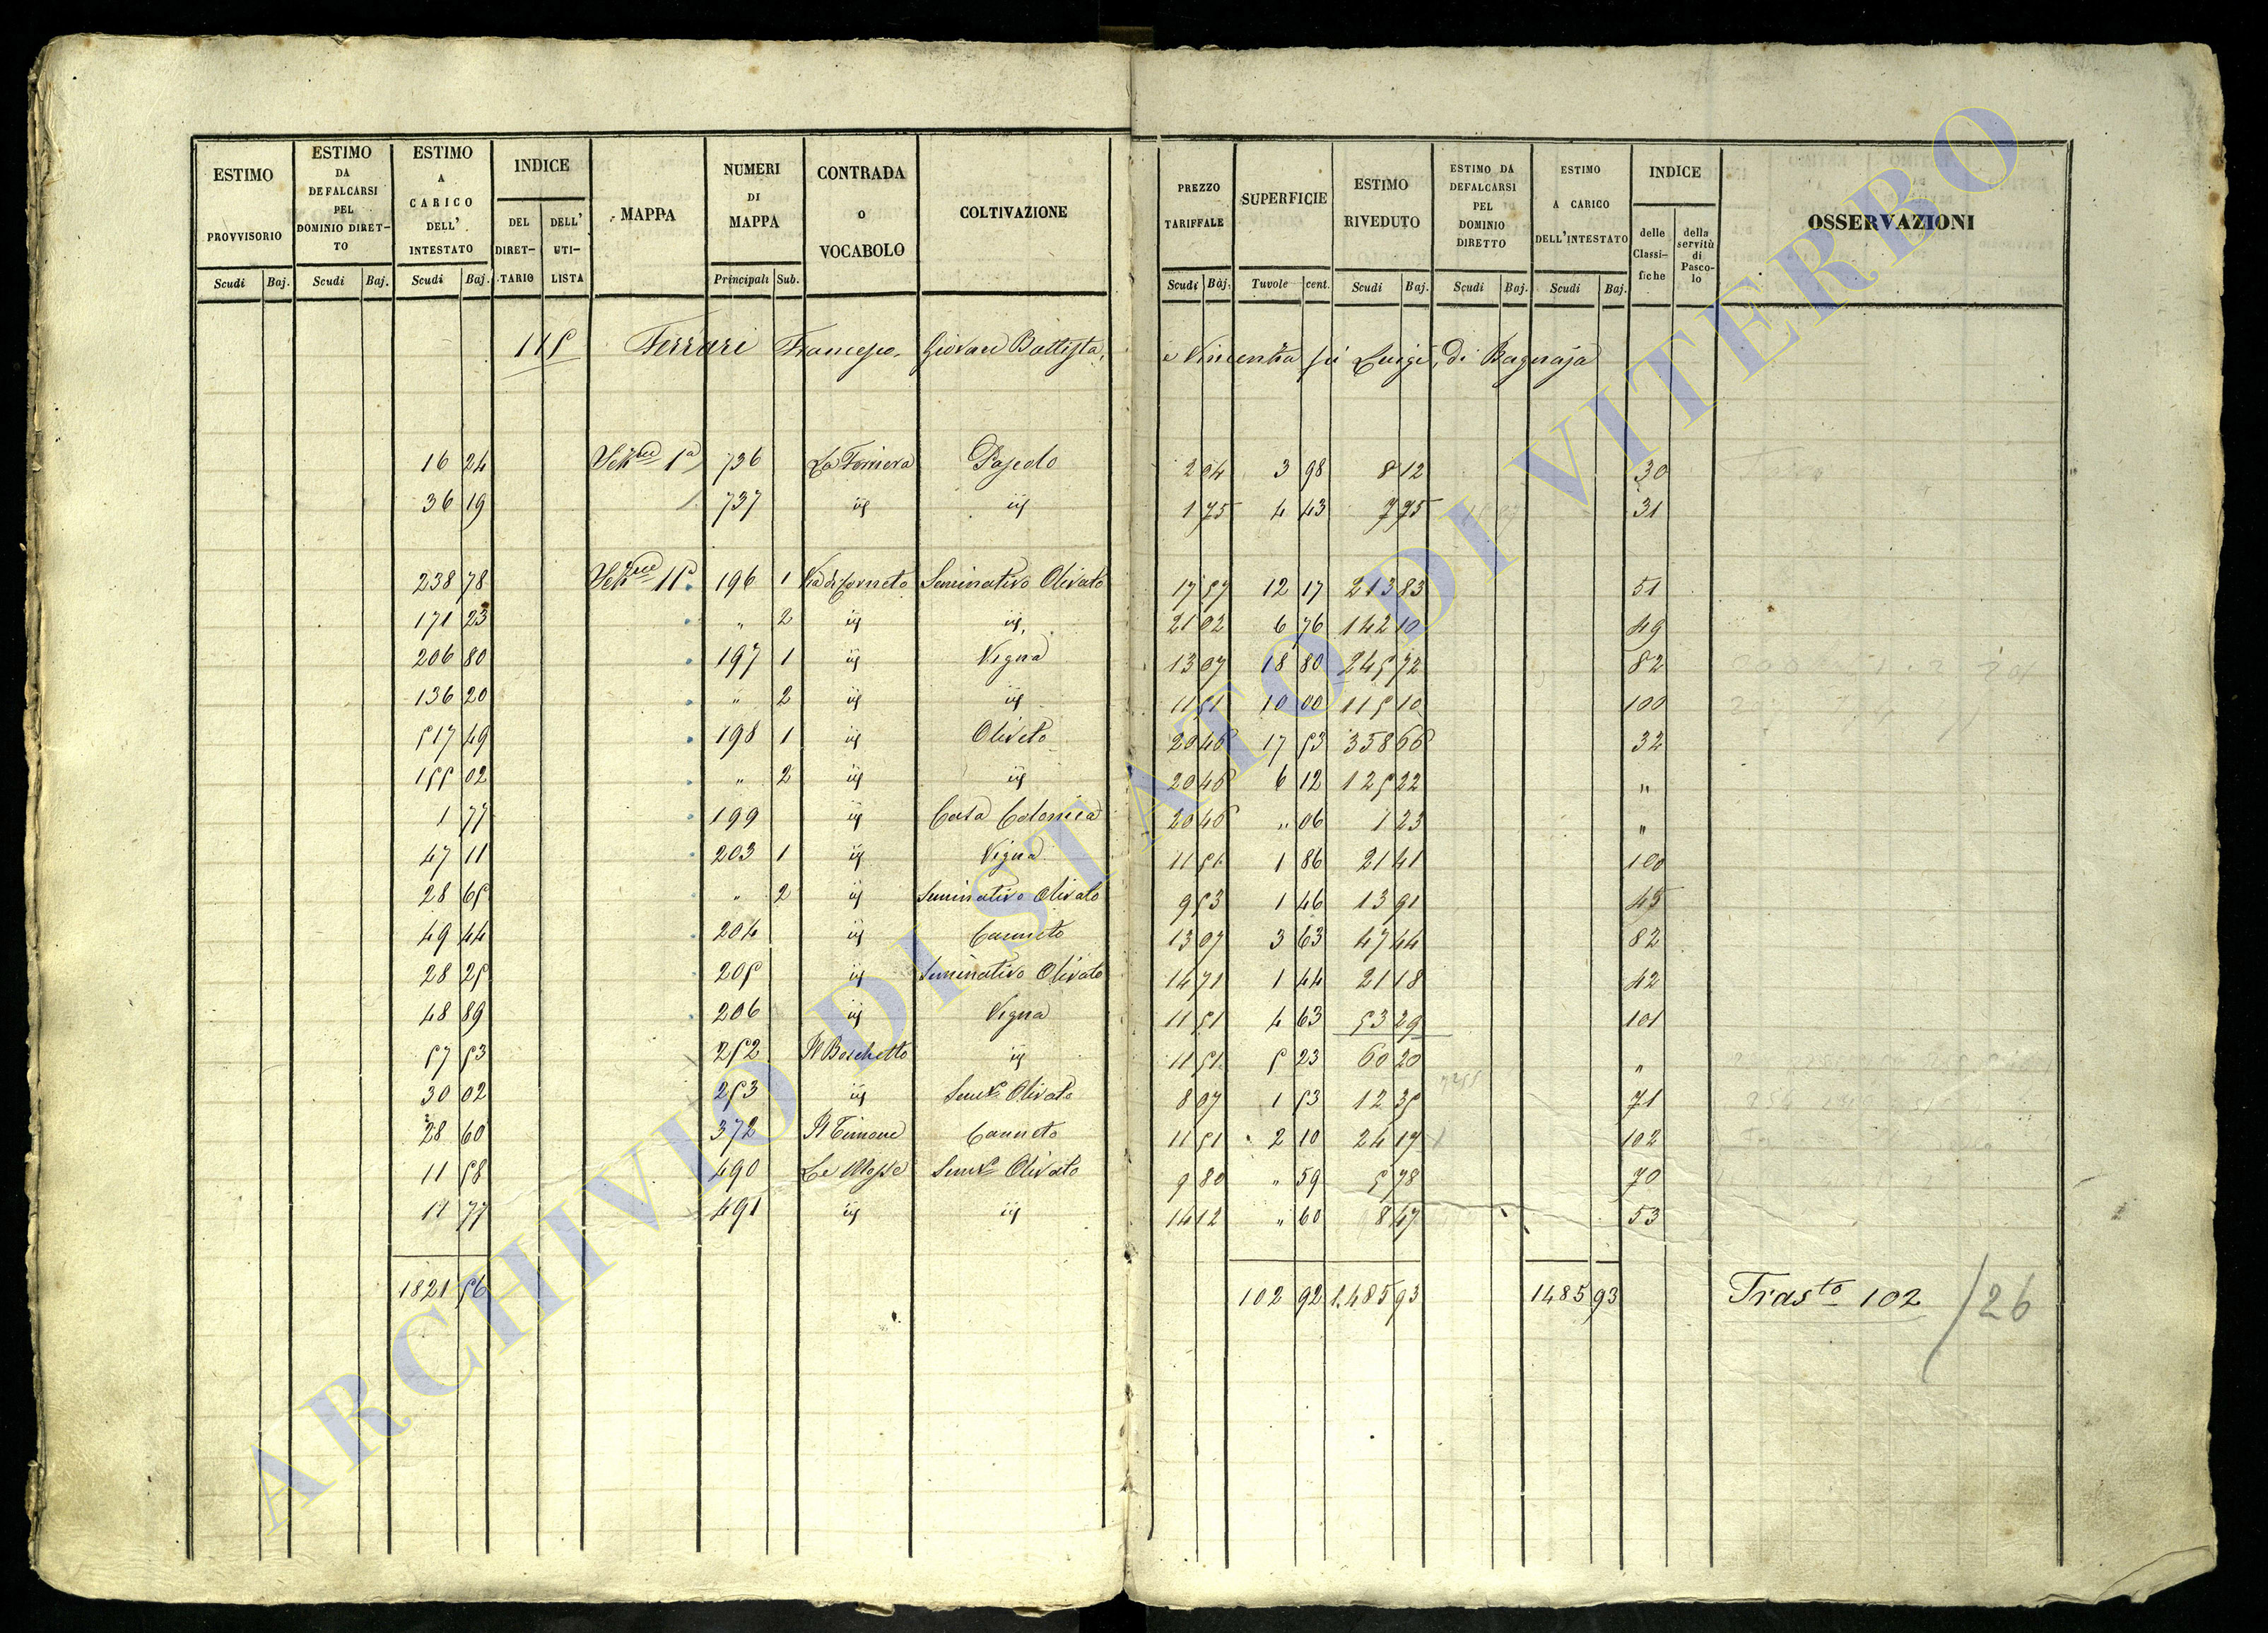 ESTIMO PROVVISORIO Scudi Baj.
ESTIMO DA DEFALCARSI PEL DOMINIO DIRETTO Scudi Baj.
ESTIMO A CARICO DELL' INTESTATO Scudi Baj.
INDICE DEL DIRETTARIO DELL' UTILISTA
MAPPA
NUMERI DI MAPPA Principali Sub.
CONTRADA O VOCABOLO
COLTIVAZIONE
PREZZO TARIFFALE Scudi Baj.
SUPERFICIE Tavole cent.
ESTIMO RIVEDUTO Scudi Baj.
ESTIMO DA DEFALCARSI PEL DOMINIO DIRETTO Scudi Baj.
ESTIMO A CARICO DELL'INTESTATO Scudi Baj.
INDICE delle Classifiche della servitù di Pascolo
OSSERVAZIONI
115 Ferrari Francesco, Giovan Battista, e Vincenzo fu Luigi, di Bagnaja
16 24 1a 736 Pascolo 2 04 3 98 8 12 30
36 19 737 ij ij 1 75 4 43 7 75 31
238 78 196 1 Via di Corneto Seminativo Olivato 17 57 12 17 213 83 51
171 23 " 2 ij ij 21 02 6 76 142 10 49
206 80 197 1 ij Vigna 13 07 18 80 245 72 82
136 20 " 2 ij ij 11 51 10 00 115 10 100
517 49 198 1 ij Oliveto 20 46 17 53 358 66 32
155 02 " 2 ij ij 20 46 6 12 125 22 "
1 77 199 ij Casa Colonica 20 46 " 06 1 23 "
47 11 203 1 ij Vigna 11 51 1 86 21 41 100
28 65 " 2 ij Seminativo Olivato 9 53 1 46 13 91 45
49 44 204 ij Canneto 13 07 3 63 47 44 82
28 25 205 ij Seminativo Olivato 14 71 1 44 21 18 42
48 89 206 ij Vigna 11 51 4 63 53 29 101
57 53 252 Il Boschetto ij 11 51 5 23 60 20 "
30 02 253 ij Semvo Olivato 8 07 1 53 12 35 71
28 60 372 Il Timone Canneto 11 51 2 10 24 17 102
11 58 490 Semvo Olivato 9 80 " 59 5 78 70
11 77 491 ij ij 14 12 " 60 8 47 53
1821 56 102 92 1485 93 1485 93 Trasto 102 /26
ARCHIVIO DI STATO DI VITERBO